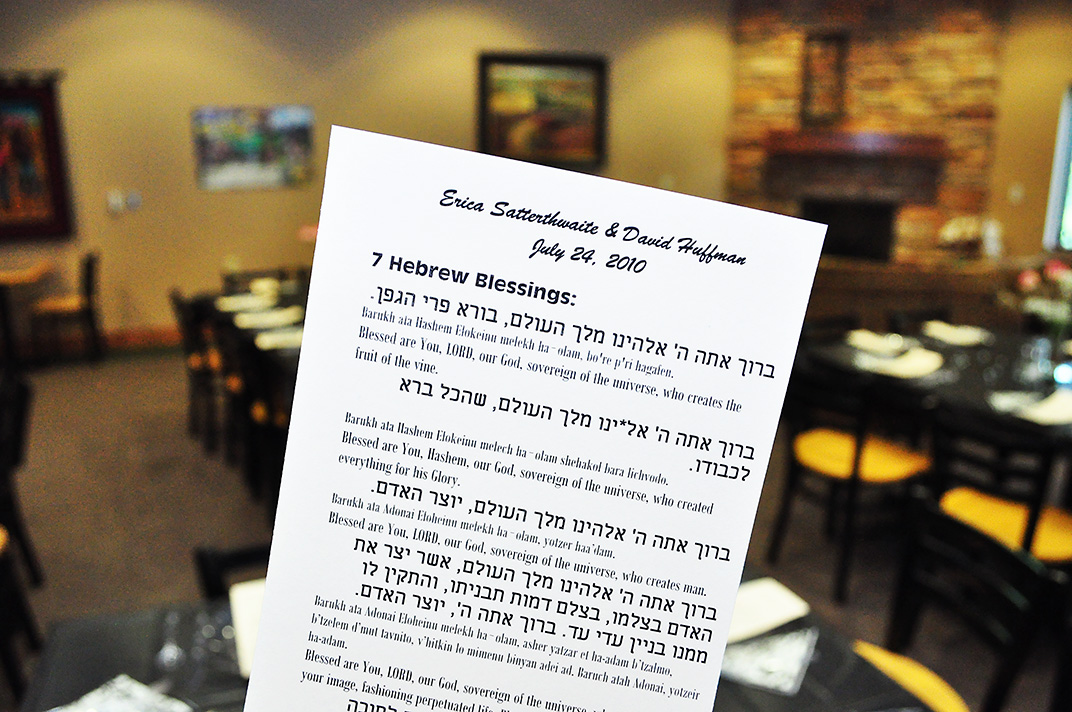 Erica Satterthwaite & David Huffman
July 24, 2010
7 Hebrew Blessings:
ברוך אתה ה' אלהינו מלך העולם, בורא פרי הגפן.
Barukh ata Hashem Elokeinu melekh ha-olam, bo're p'ri hagafen.
Blessed are You, LORD, our God, sovereign of the universe, who creates the
fruit of the vine.
ברוך אתה ה' אל*ינו מלך העולם, שהכל ברא
לכבודו.
Barukh ata Hashem Elokeinu melech ha-olam shehakol bara lichvodo.
Blessed are You, Hashem, our God, sovereign of the universe, who created
everything for his Glory.
ברוך אתה ה' אלהינו מלך העולם, יוצר האדם.
Barukh ata Adonai Eloheinu melekh ha-olam, yotzer haa'dam.
Blessed are You, LORD, our God, sovereign of the universe, who creates man.
ברוך אתה ה' אלהינו מלך העולם, אשר יצר את
האדם בצלמו, בצלם דמות תבניתו, והתקין לו
ממנו בניין עדי עד. ברוך אתה ה', יוצר האדם.
Barukh ata Adonai Eloheinu melekh ha-olam, asher yatzar et ha-adam b'tzalmo,
b'tzelem d'mut tavnito, v'hitkin lo mimenu binyan adei ad. Baruch atah Adonai, yotzeir
ha-adam.
Blessed are You, LORD, our God, sovereign of the universe,
your image, fashioning perpetuated life.